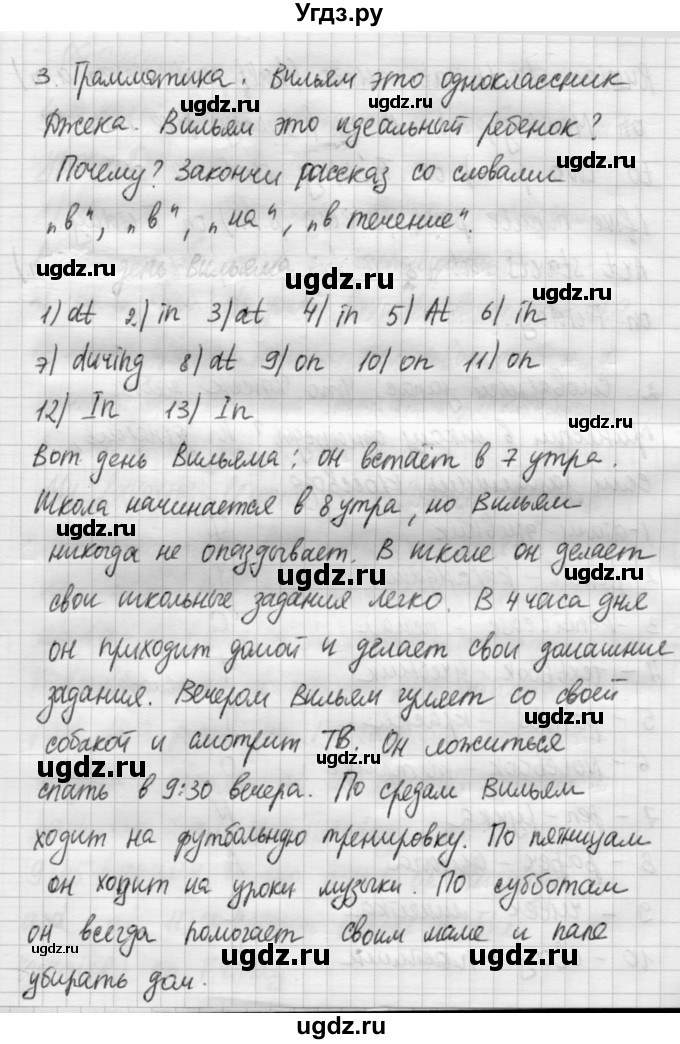 Угдз.ру
3. Грамматика. Вильям это одноклассник
ugdz.ru ugdz.ru
Джека. Вильям это идеальный ребенок?
Почему? Закончи рассказ со словами
ugdz.ru
„в", „в", „на", „в течение".
ugdz.ru
ugdz.ru
ugdz.ru
1) at 2) in 3) at 4) in 5) At 6) in
7) during 8) at 9) on 10) on 11) on
ugdz.ru
12) In 13) In
ugdz.ru
Вот день Вильяма: он встаёт в 7 утра.
Школа начинается в 8 утра, но Вильям
ugdz.ru
никогда не опаздывает. В школе он делает
ugdz.ru ugdz.ru
свои школьные задания легко. В 4 часа дня
он приходит домой и делает свои домашние
задания. Вечером Вильям гуляет со своей
ugdz.ru
собакой и смотрит ТВ. Он ложиться
ugdz.ru ugdz.ru
спать в 9:30 вечера. По средам Вильям
ходит на футбольную тренировку. По пятницам
ugdz.ru
он ходит на уроки музыки. По субботам
ugdz.ru
он всегда помогает своим маме и папе
ugdz.ru ugdz.ru ugdz.ru
убирать дом.
ugdz.ru